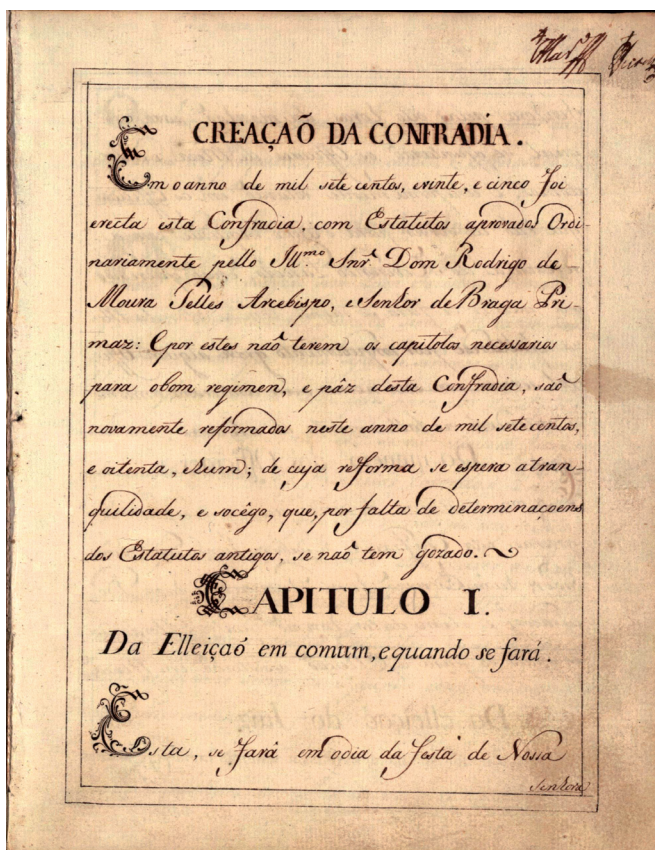 CREAÇAÕ DA CONFRADIA.
Em o anno de mil sete centos, evinte, e cinco foi
erecta esta Confradia, com Estatutos aprovados Ordi-
nariamente pello Ill.mo Snr. Dom Rodrigo de
Moura Telles Arcebispo, e Senhor de Braga Pri-
maz: E por estes naõ terem os capitolos necessarios
para obom regimen, e páz desta Confradia, saõ
novamente reformados neste anno de mil sete centos,
e oitenta, ehum; de cuja reforma se espera atran-
quilidade, e socêgo, que, por falta de determinaçoens
dos Estatutos antigos, se naõ tem gozado.
CAPITULO I.
Da Elleiçaõ em comum, e quando se fará.
Esta, se fará em odia da festa de Nossa
Senhora